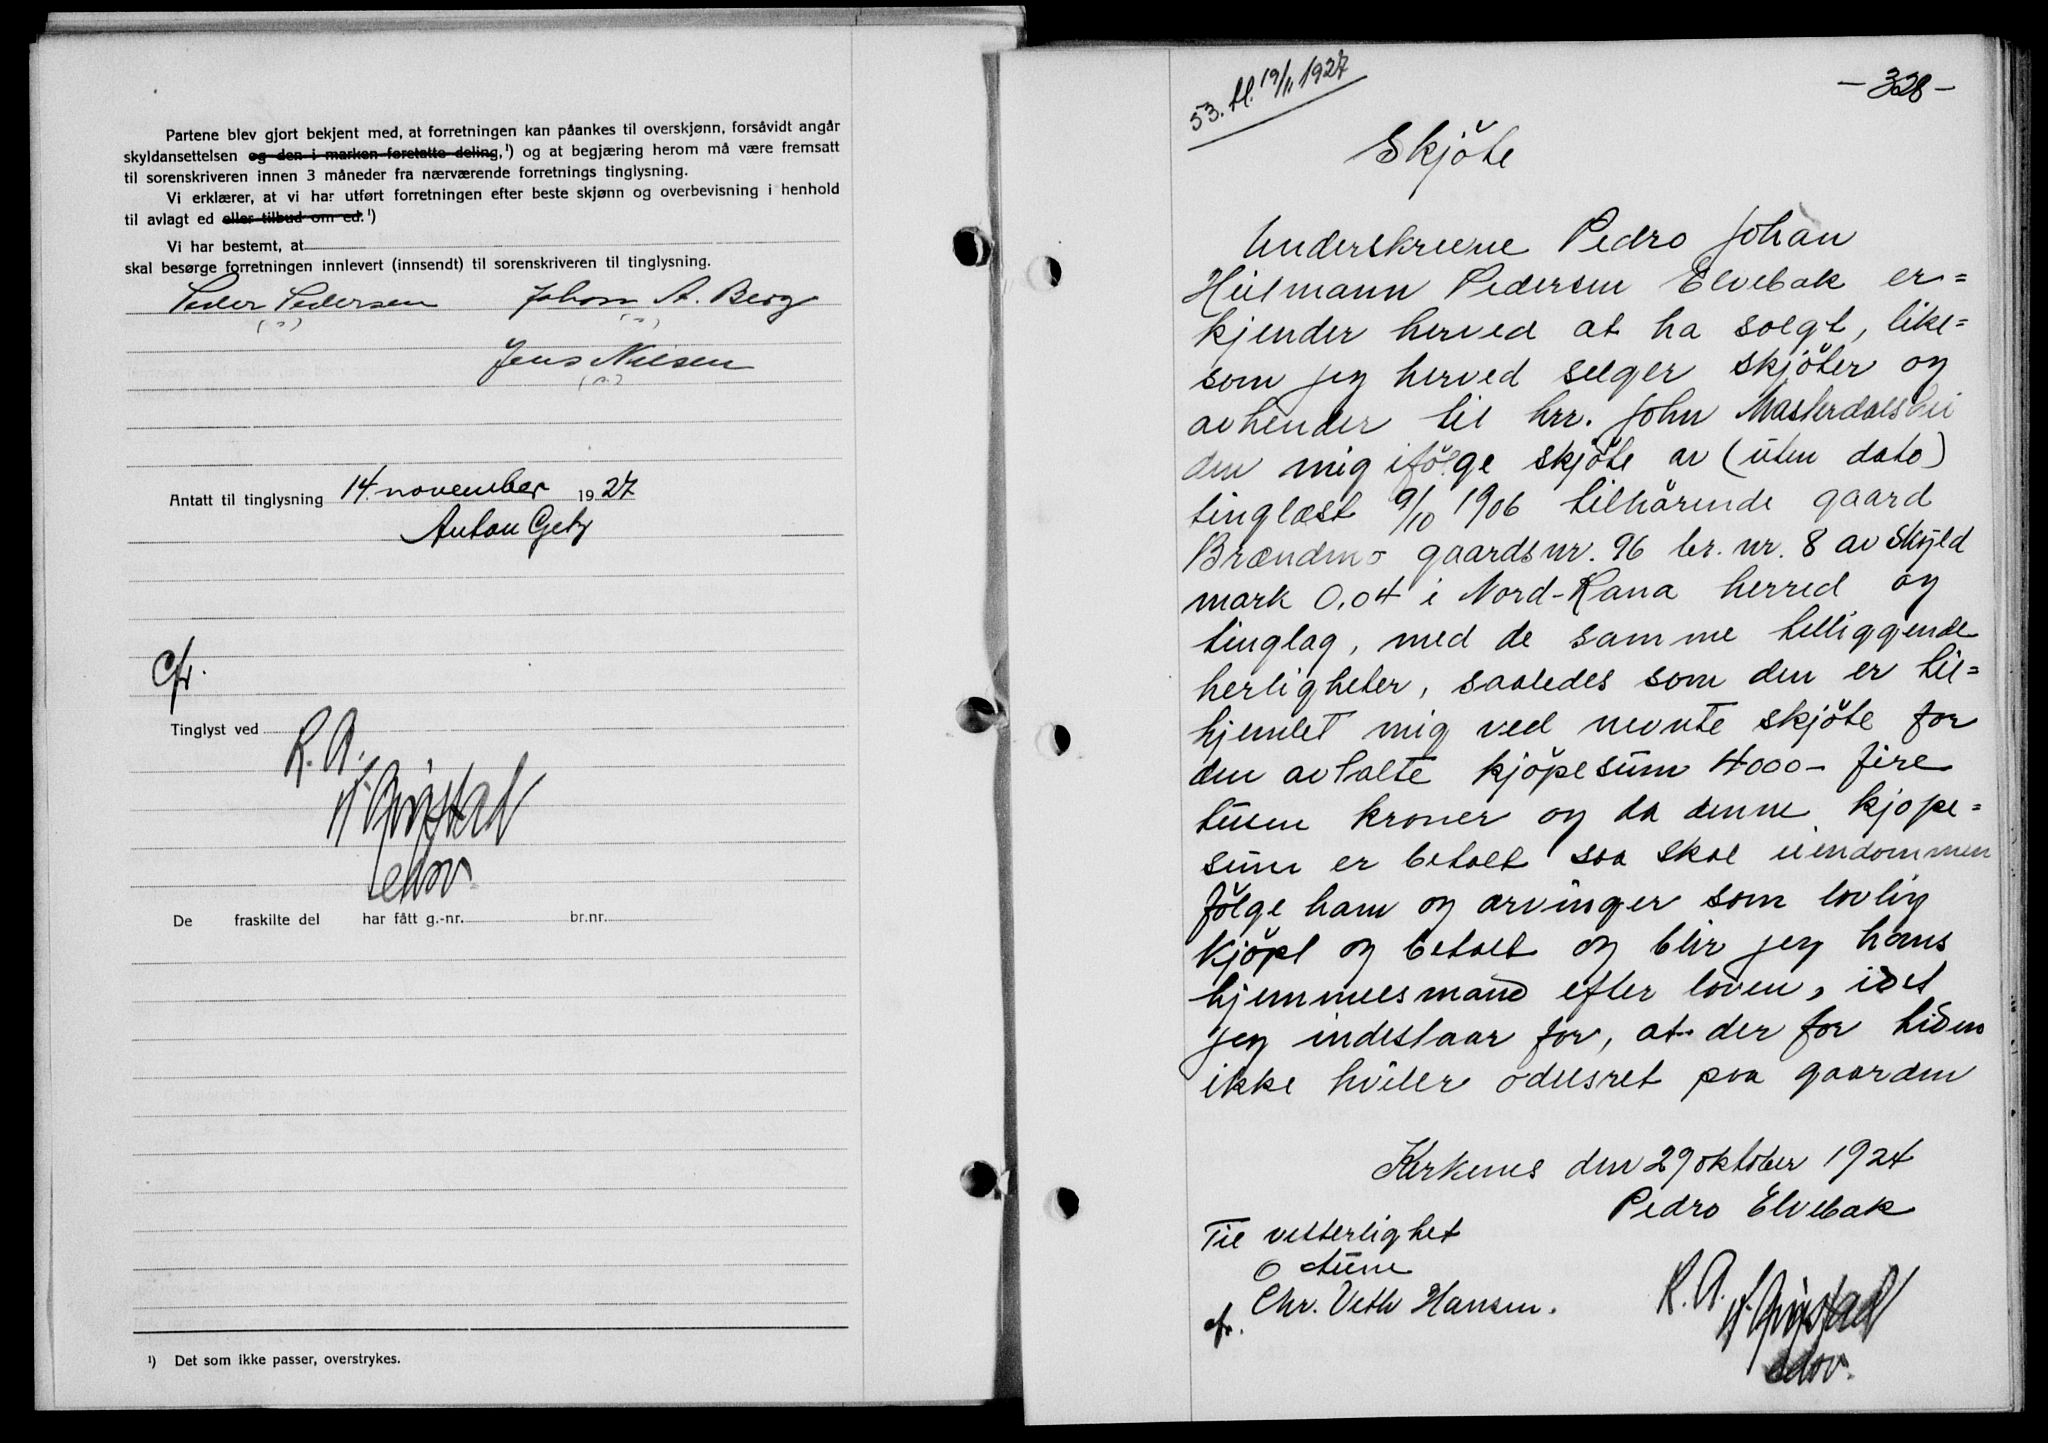 Partene blev gjort bekjent med, at forretningen kan påankes til overskjønn, forsåvidt angår
skyldansettelsen og den i marken foretatte deling,¹) og at begjæring herom må være fremsatt
til sorenskriveren innen 3 måneder fra nærværende forretnings tinglysning.
Vi erklærer, at vi har utført forretningen efter beste skjønn og overbevisning i henhold
til avlagt ed eller tilbud om ed.¹)
Vi har bestemt, at
skal besørge forretningen innlevert (innsendt) til sorenskriveren til tinglysning.
Peder Pedersen Johan A. Berg
Jens Nilsen
Antatt til tinglysning 14. november 1927
Anton Getz
Cfr.
Tinglyst ved
R. A.
De fraskilte del har fått g.-nr. br.nr.
¹) Det som ikke passer, overstrykes.
53. tl. 19/11 1927
- 328 -
Skjöte
Underskrevne Pedro Johan
Hielmann Pedersen Elvebak er=
kjender herved at ha solgt, like=
som jeg herved selger skjöter og
avhender til hrr. John Masterdalsbei
den mig ifölge skjöte av (uten dato)
tinglæst 9/10 1906 tilhörende gaard
Brændmo gaardsnr. 96 br. nr. 8 av skyld
mark 0,04 i Nord-Rana herred og
tinglag, med de samme tilliggende
herligheter, saaledes som den er til=
hjemlet mig ved nevnte skjöte for
den avtalte kjöpesum 4000- fire
tusen kroner og da denne kjope=
sum er betalt saa skal eiendommen
fölge ham og arvinger som lovlig
kjöpt og betalt og blir jeg hans
hjemmelsmand efter loven, idet
jeg indestaar for, at der for tiden
ikke hviler odelsret paa gaarden
Kirkenes den 29 oktober 1924
Pedro Elvebak
Til vitterlighet
O Aune
Chr. Veth Hansen.
cfr.
R. A.